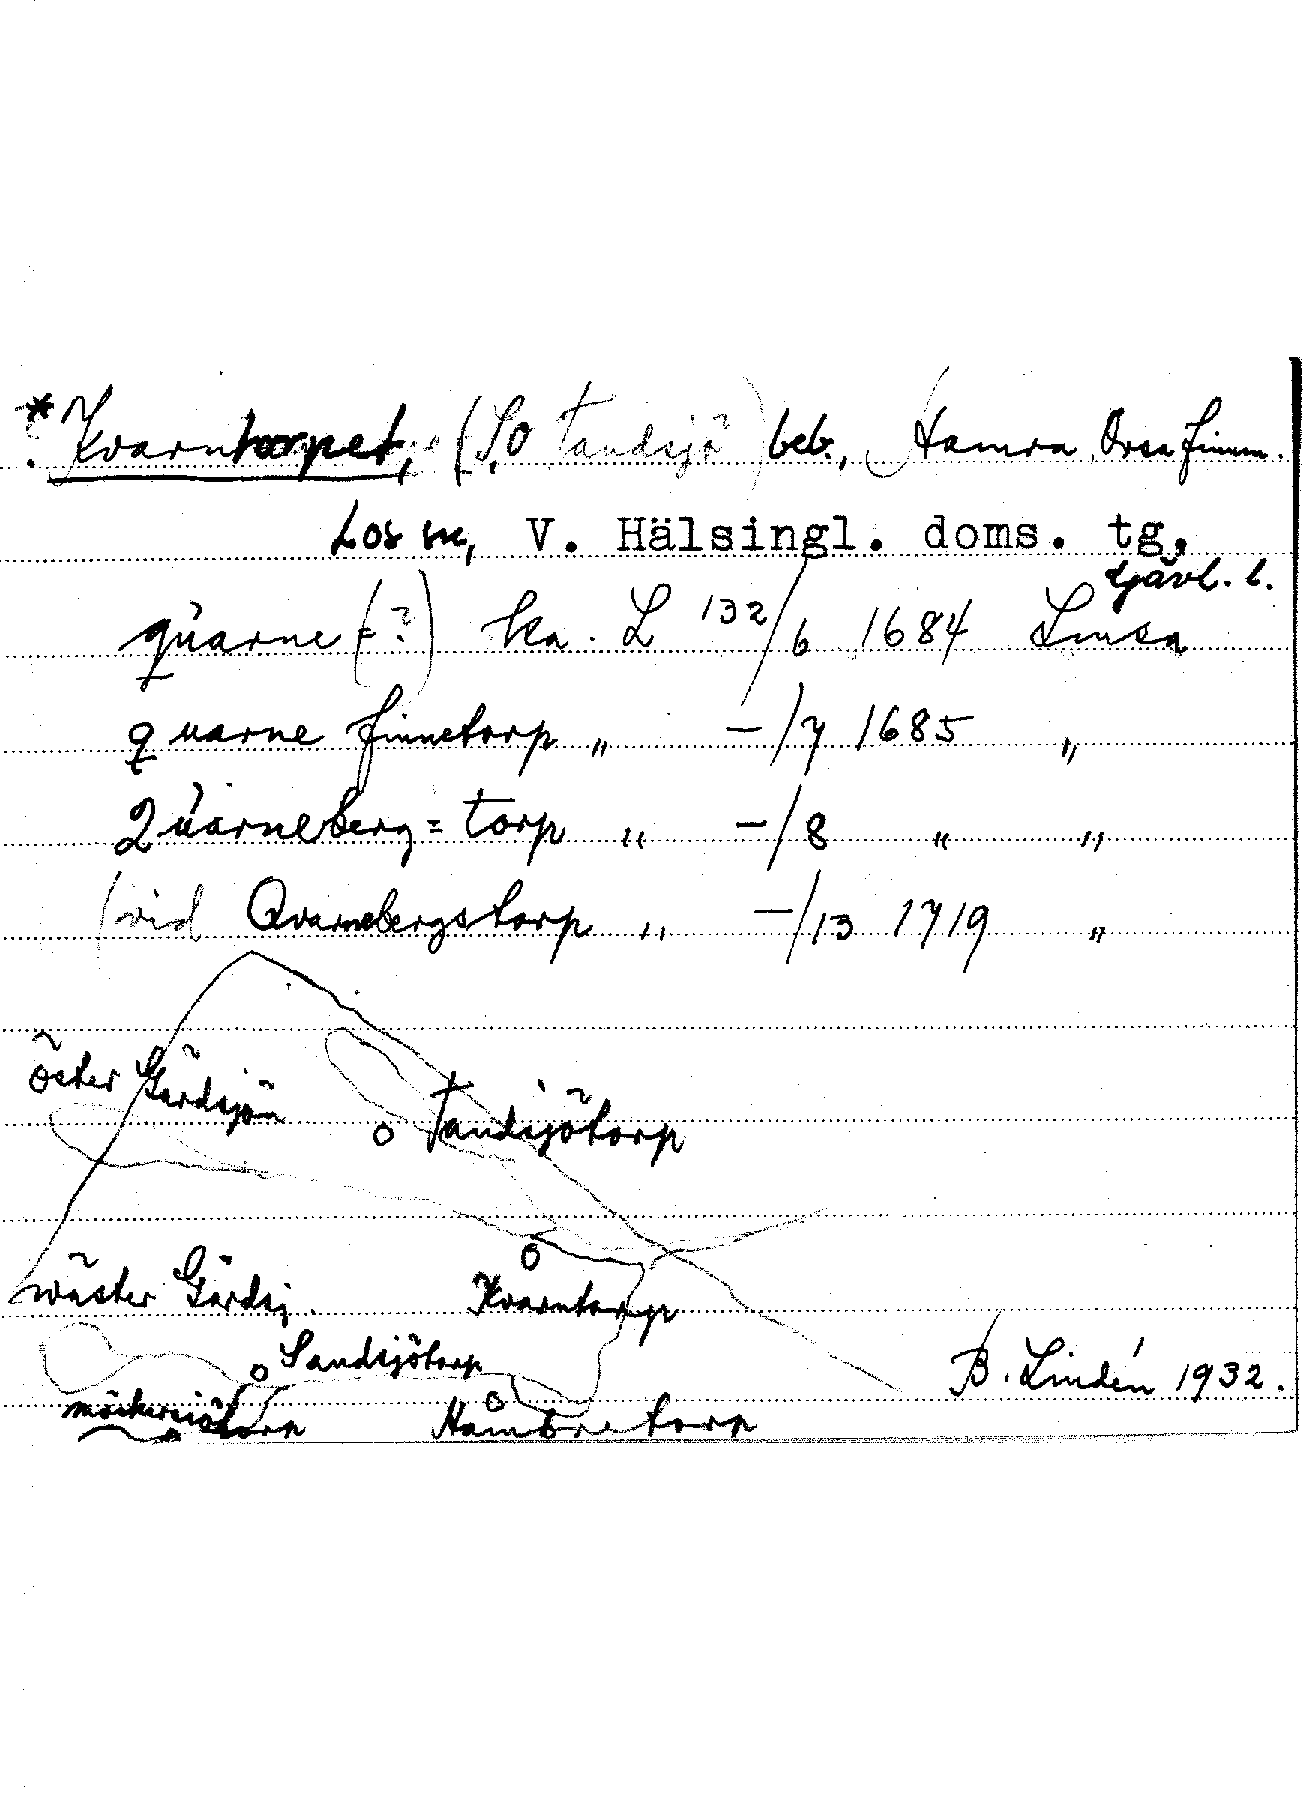 * Kvarntorpet, (S.O Tandsjö) beb., Hamra, Orsa finnm.
Los sn, V. Hälsingl. doms. tg,
Gävl. l.
quarne (=?) ka. L 132/6 1684 Linsa
quarne finnetorp „ —/7 1685 „
Quarneberg= torp „ —/8 „ „
(vid Qvarnebergstorp „ —/13 1719 „
öster Gärdsjön
Tandsjötorp
wäster Gärdsj.
Kvarntorp
Sandsjötorp
B. Lindén 1932.
möckersiötorp
Hambretorp